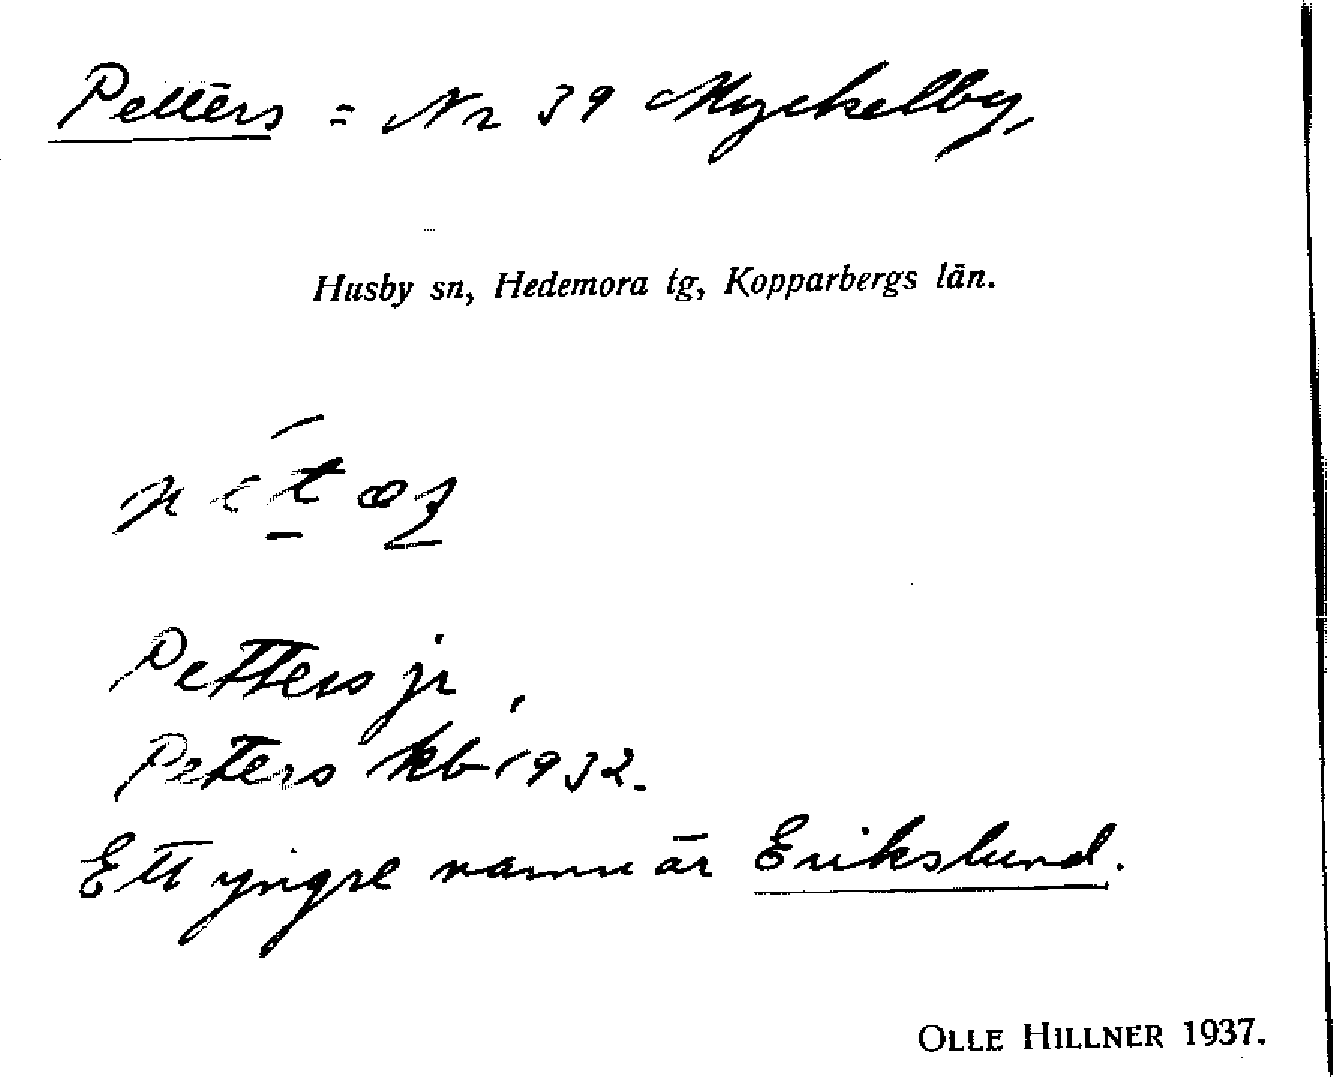 Petters = Nr 39 Myckelby,
Husby sn, Hedemora tg, Kopparbergs län.
Petters jr,
Peters kb 1932.
Ett yngre namn är Erikslund.
OLLE HILLNER 1937.